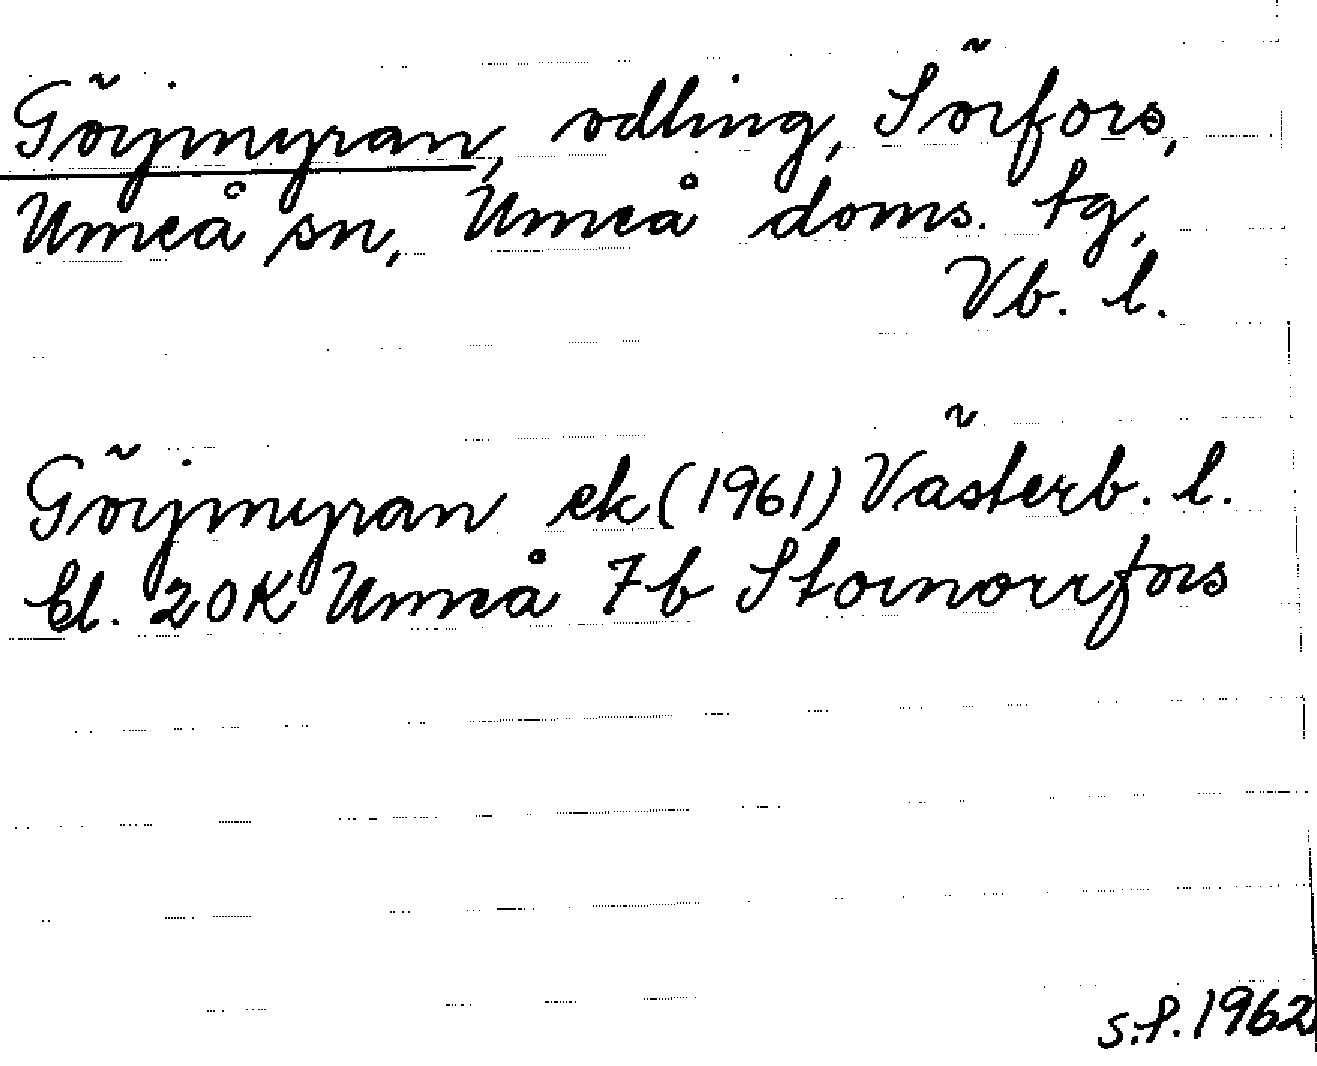 Görjmyran, odling, Sörfors,
Umeå sn, Umeå doms. tg,
Vb. l.
Görjmyran ek (1961) Västerb. l.
bl. 20K Umeå 7b Stornorrfors
s.f. 1962